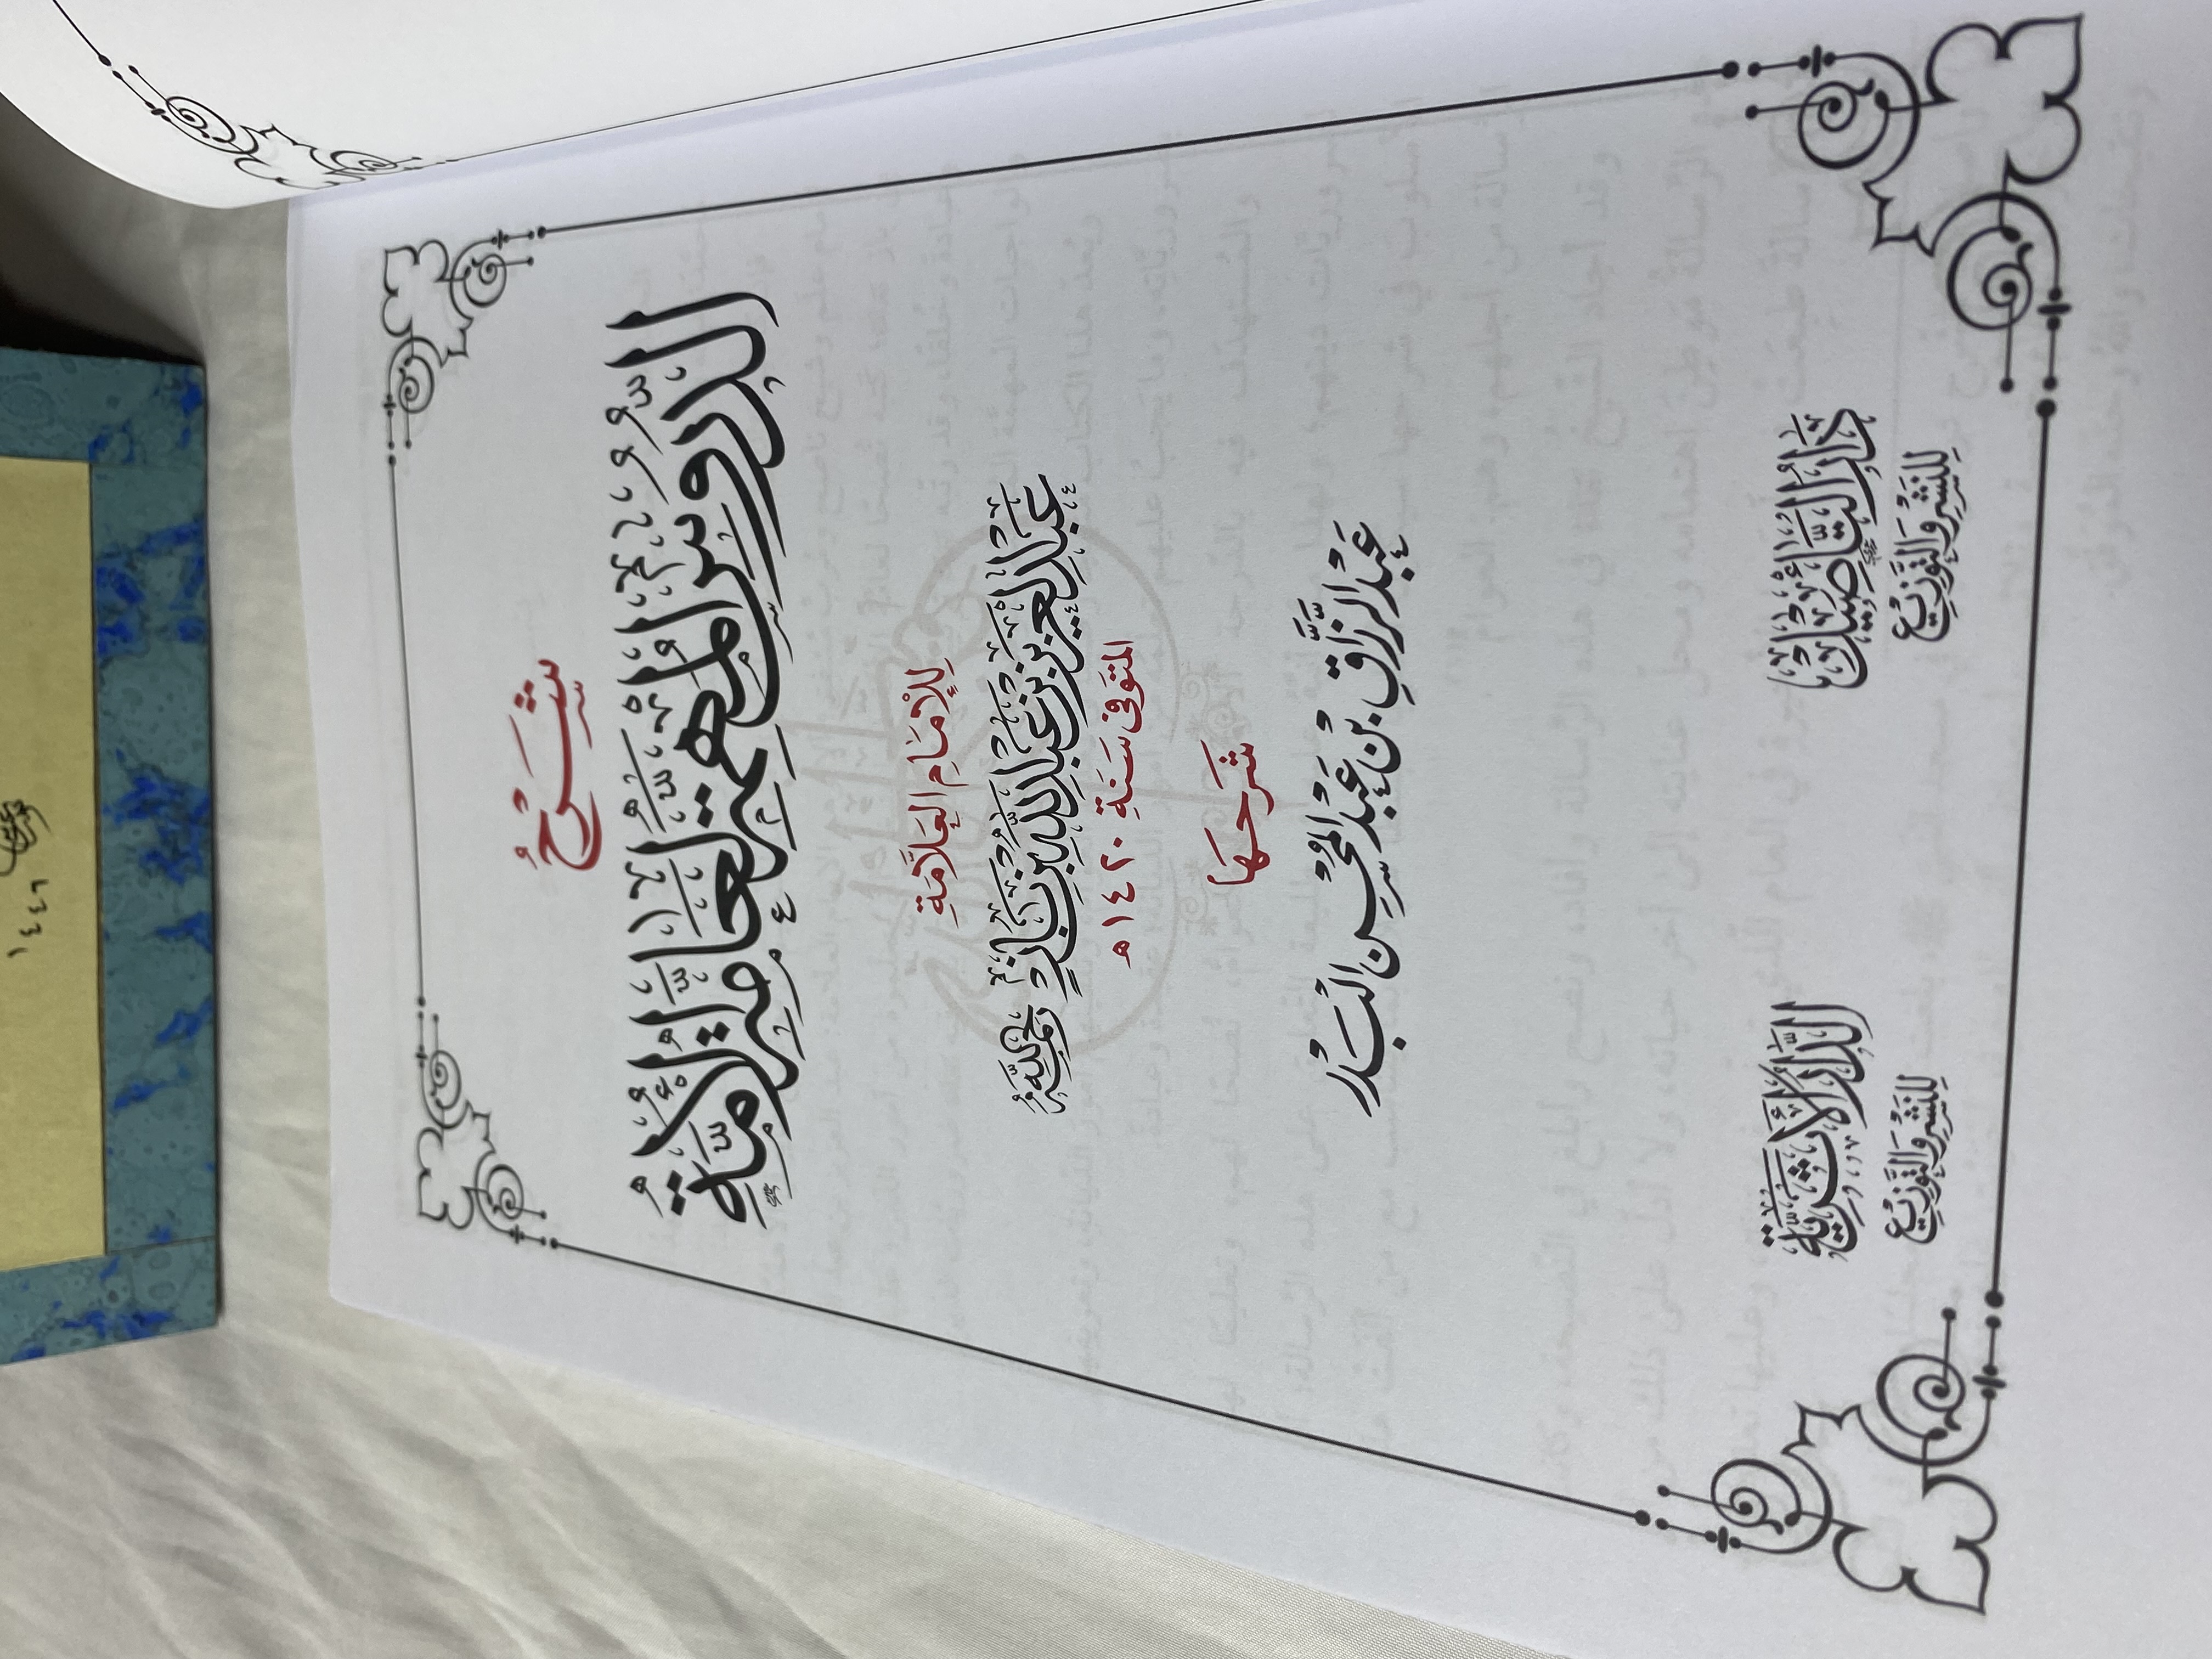 شَرْحُ
الدُّرُوسُ المُهِمَّةُ لِعَامَّةِ الأُمَّةِ
لِلْإِمَامِ العَلَّامَةِ
عَبْدِ العَزِيزِ بْنِ عَبْدِ اللَّهِ بْنِ بَازٍ رَحِمَهُ اللَّهُ
المُتَوَفَّى سَنَةِ ١٤٢٠ هـ
شَرَحَهَا
عَبْدُ الرَّزَّاقِ بْنُ عَبْدِ المُحْسِنِ البَدْر
الدَّارُ الأَثَرِيَّةُ
لِلنَّشْرِ وَالتَّوْزِيعِ
لِلنَّشْرِ وَالتَّوْزِيعِ
١٤٤٦